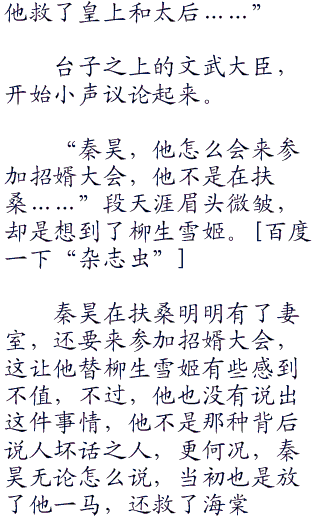 他救了皇上和太后……”
台子之上的文武大臣，
开始小声议论起来。
“秦昊，他怎么会来参
加招婿大会，他不是在扶
桑……”段天涯眉头微皱，
却是想到了柳生雪姬。[百度
一下“杂志虫”]
秦昊在扶桑明明有了妻
室，还要来参加招婿大会，
这让他替柳生雪姬有些感到
不值，不过，他也没有说出
这件事情，他不是那种背后
说人坏话之人，更何况，秦
昊无论怎么说，当初也是放
了他一马，还救了海棠